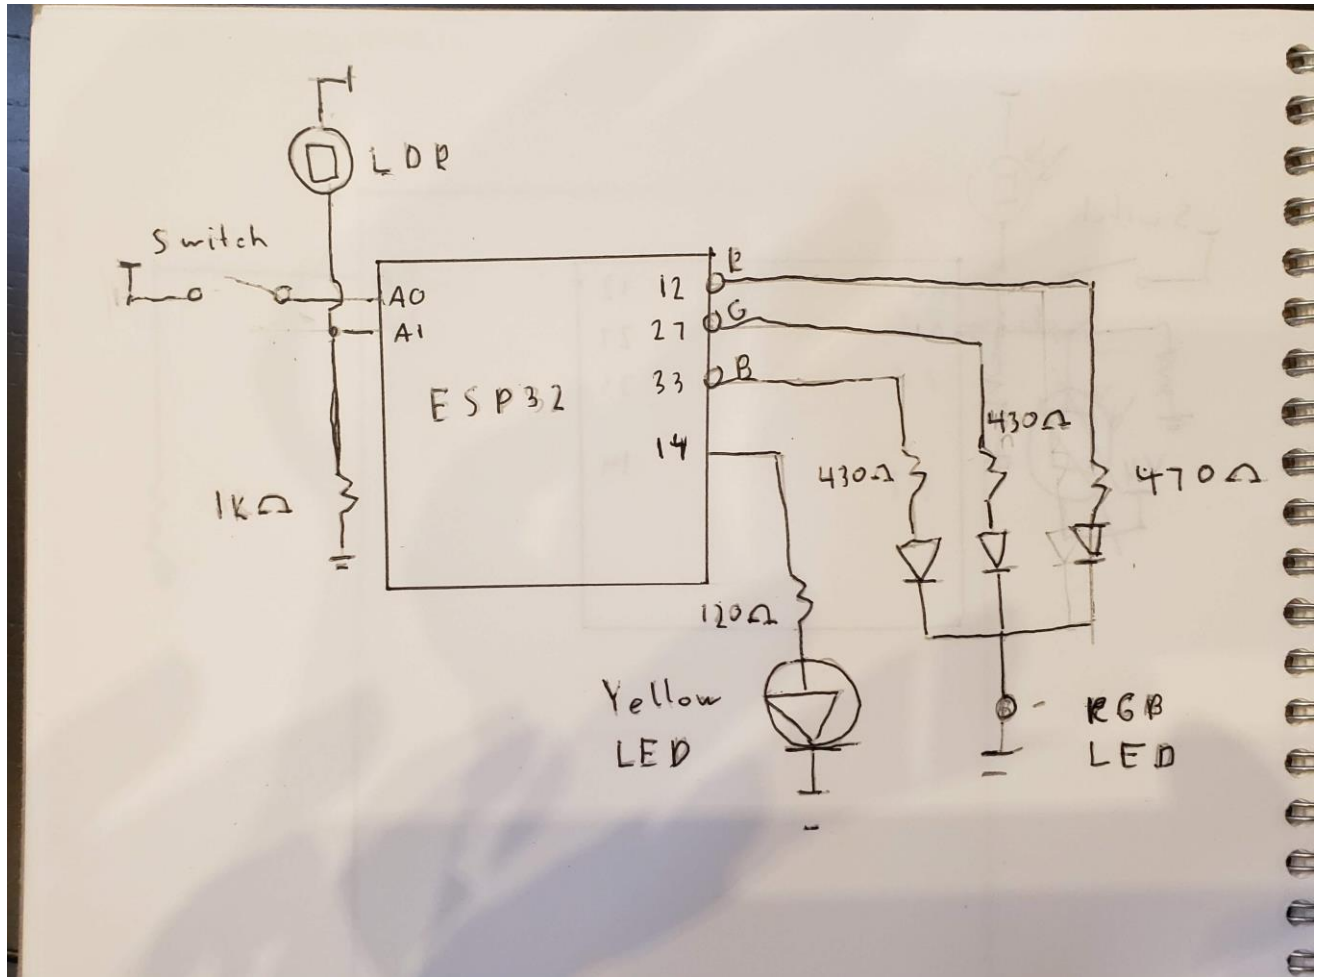 LDR
Switch
A0
A1
ESP32
1KΩ
12
27
33
14
R
G
B
430Ω
430Ω
470Ω
120Ω
Yellow
LED
RGB
LED